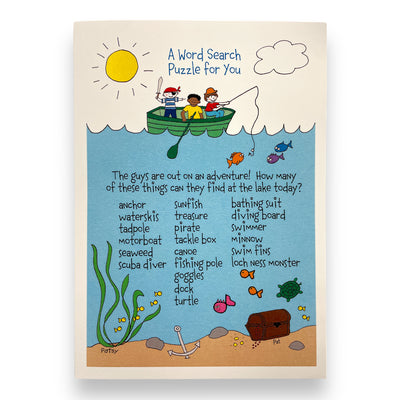 A Word Search
Puzzle for You
The guys are out on an adventure! How many
of these things can they find at the lake today?
anchor
waterskis
tadpole
motorboat
seaweed
scuba diver
sunfish
treasure
pirate
tackle box
canoe
fishing pole
goggles
dock
turtle
bathing suit
diving board
swimmer
minnow
swim fins
loch ness monster
Patsy